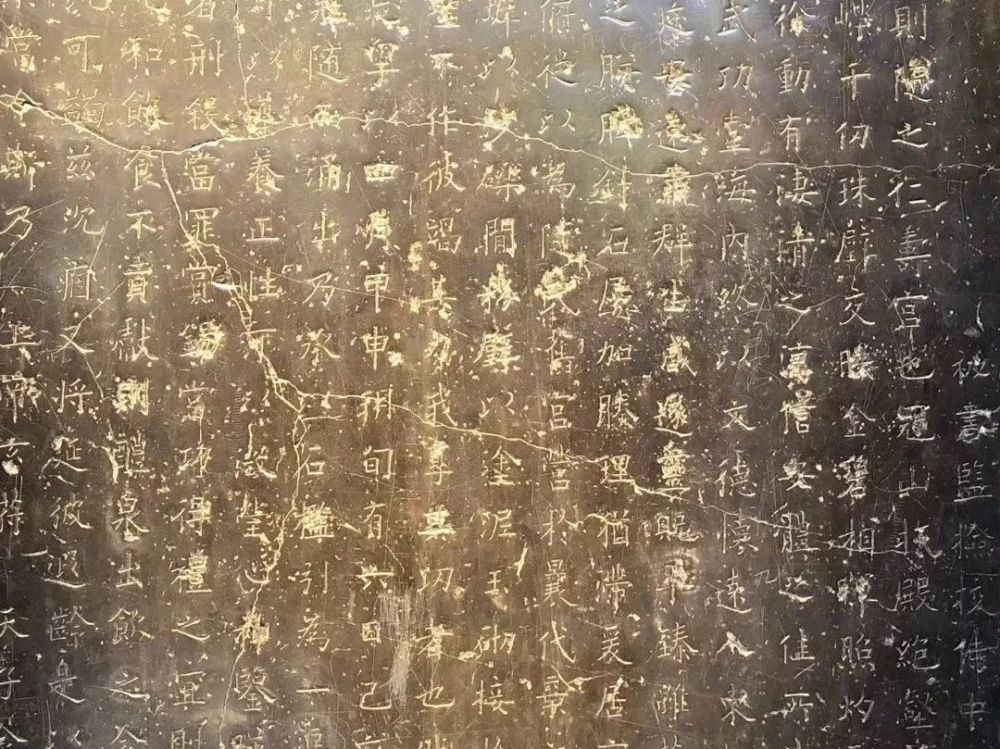 秘書監檢校侍中
則隨之仁壽宮也冠山抗殿絕壑
嶫千仞珠璧交映金碧相暉照灼
徐動有淒清之涼信安體之佳所
武功壹海內終以文德懷遠人東
延安遠肅群生咸遂靈貺畢臻雖
之胼胝針石屢加腠理猶滯爰居
府從以為隨氏舊宮營於曩代棄
墀以沙礫間粉壁以塗泥玉砌接
至不作彼竭其力我享其功者也
忘粵以四月甲申朔旬有六日己
焉隨而涌出乃承以石檻引為一
可以導養正性可以澂瑩心神鑒
者刑殺當罪賞錫當功得禮之宜則
和飲食不貢獻則醴泉出飲之令
可蠲茲沉痼又將延彼遐齡是
當今斯乃上帝玄符天子令